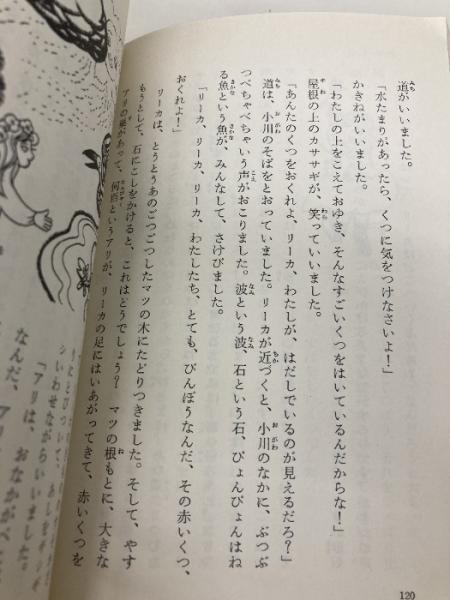 道がいいました。
「水たまりがあったら、くつに気をつけなさいよ!」
かきねがいいました。
「わたしの上をこえておゆき、そんなすごいくつをはいているんだからな!」
屋根の上のカササギが、笑っていいました。
「あんたのくつをおくれよ、リーカ、わたしが、はだしでいるのが見えるだろ?」
道は、小川のそばをとおっていました。リーカが近づくと、小川のなかに、ぶつぶ
つぺちゃぺちゃいう声がおこりました。波という波、石という石、ぴょんぴょんはね
る魚という魚が、みんなして、さけびました。
「リーカ、リーカ、リーカ、わたしたち、とても、びんぼうなんだ、その赤いくつ、
おくれよ!」
リーカは、とうとうあのごつごつしたマツの木にたどりつきました。そして、やす
もうとして、石にこしをかけると、これはどうでしょう? マツの根もとに、大きな
アリの巣があって、何百というアリが、リーカの足にはいあがってきて、赤いくつを
いわせながらいいました。
「アリは、おなかがペ
なんだ、ア
120